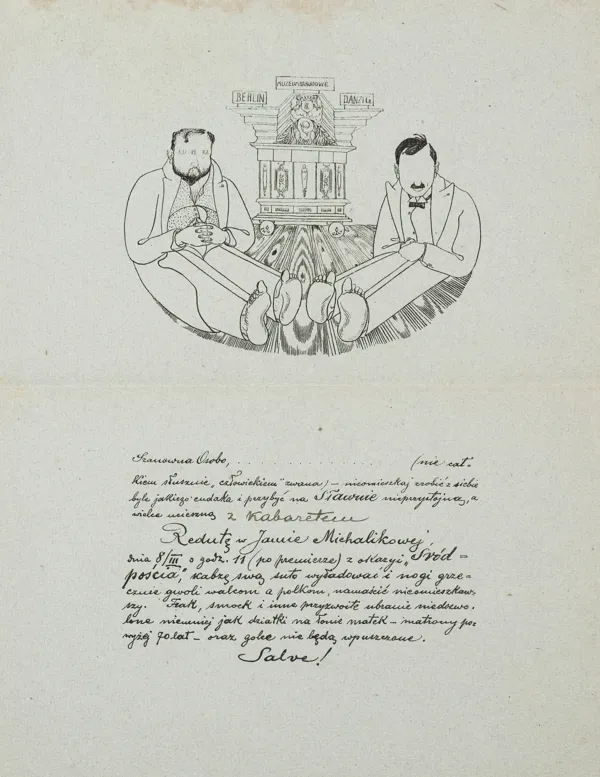 MUZEUM NARODOWE
BERLIN
DANZIG
Szanowna Osobo, . . . . . . . . . . . . . . . (nie cał-
kiem słusznie „człowiekiem" zwana) — nieomieszkaj zrobić z siebie
byle jakiego cudaka i przybyć na Sławnie nieprzystojną, a
wielce ucieszną z Kabaretem
Redutę w Jamie Michalikowej,
dnia 8/III o godz. 11 (po premierze) z okazyi „Śród-
pościa," kabzę swą suto wyładować i nogi grze-
cznie gwoli walcom a polkom, namaścić nieomieszkaw-
szy. Frak, smock i inne przyzwoite ubranie niedozwo-
lone niemniej jak dziatki na łonie matek — matrony po-
wyżej 70 lat — oraz golce nie będą wpuszczone.
Salve!